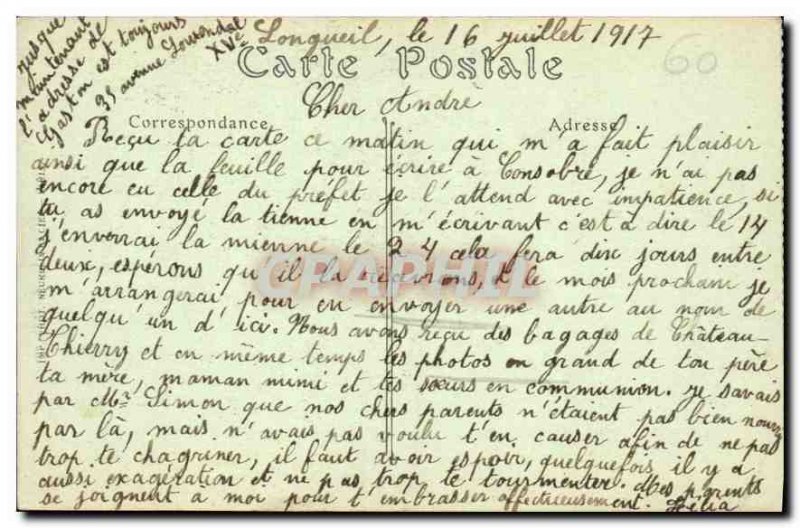 jusque
maintenant
l'adresse de
Gaston est toujours
35 avenue Lowendal
XVe
Longueil, le 16 juillet 1917
60
Carte Postale
Cher André
Correspondance
Adresse
Reçu ta carte ce matin qui m'a fait plaisir
ainsi que la feuille pour écrire à Consobre, je n'ai pas
encore eu celle du préfet je l'attend avec impatience, si
tu as envoyé la tienne en m'écrivant c'est à dire le 14
j'enverrai la mienne le 24 cela fera dix jours entre
deux, espérons qu'il la recevrons, & le mois prochain je
m'arrangerai pour en envoyer une autre au nom de
quelqu'un d'ici. Nous avons reçu des bagages de Château-
Thierry et en même temps les photos en grand de ton père
ta mère, maman mimi et tes sœurs en communion. je savais
par Mr Simon que nos chers parents n'étaient pas bien nourri
par là, mais n'avais pas voulu t'en causer afin de ne pas
trop te chagriner, il faut avoir espoir, quelquefois il y a
aussi exagération et ne pas trop te tourmenter. Mes parents
se joignent a moi pour t'embrasser affectueusement. Lélia
CPAPHIL